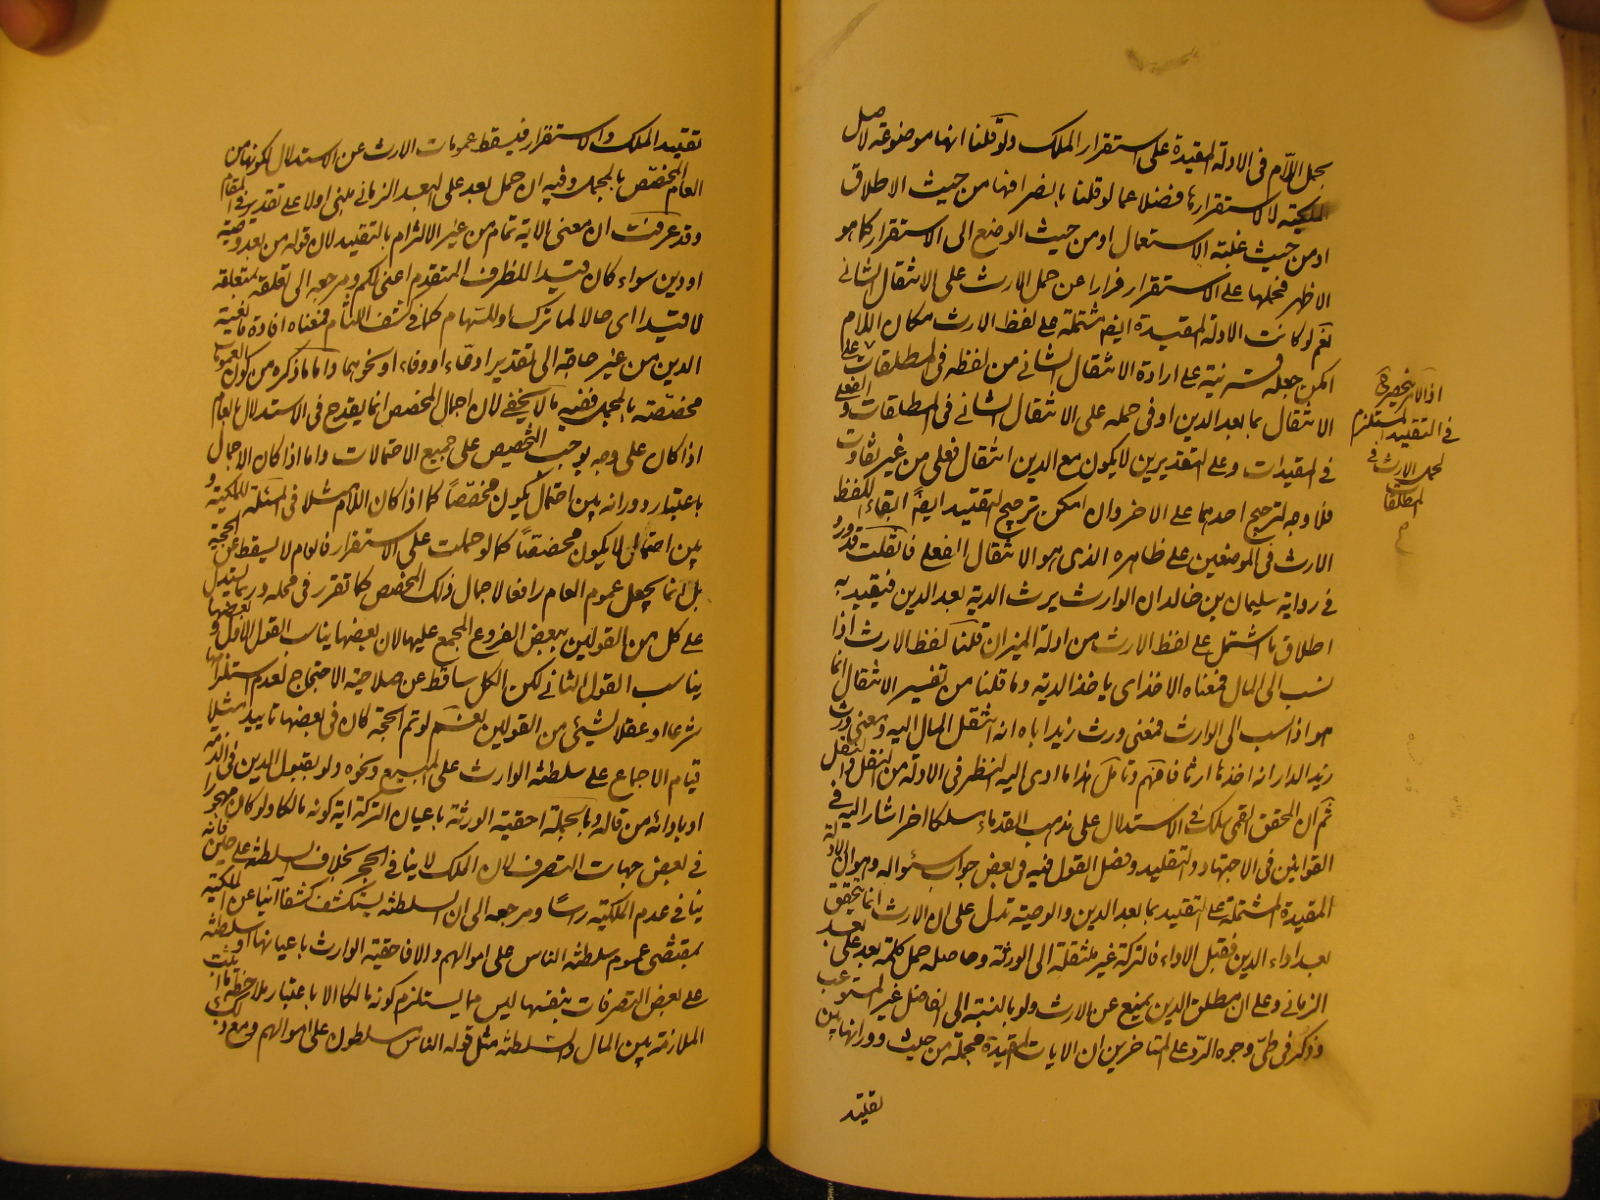 بحمل اللام فى الادلة المقيدة على استقرار الملك ولو قلنا انها موضوعة لاصل
الملكية لا لاستقرارها فضلا عما لو قلنا بانصرافها من حيث الاطلاق
او من حيث غلبة الاستعمال او من حيث الوضع الى الاستقرار كما هو
الاظهر فحملها على الاستقرار فرارا عن حمل الارث على الانتقال الشانى
نعم لو كانت الادلة المقيدة ايضا مشتملة على لفظ الارث مكان اللام
امكن جعله قرينة على ارادة الانتقال الشانى من لفظه فى المطلقات على
الانتقال بما بعد الدين او فى حمله على الانتقال الشانى فى المطلقات والفعلى
فى المقيدات وعلى التقديرين لا يكون مع الدين انتقال فعلى من غير تفاوت
فلا وجه لترجيح احدهما على الاخر وان امكن ترجيح التقييد ايضا ابقاء للفظ
الارث فى الموضعين على ظاهره الذى هو الانتقال الفعلى فان قلت قد ورد
فى رواية سليمان بن خالد ان الوارث يرث الدية بعد الدين فيقيد به
اطلاق ما اشتمل على لفظ الارث من ادلة الميراث قلنا لفظ الارث اذا
نسب الى المال فمعناه الاخذ اى ياخذ الدية وما قلنا من تفسير الانتقال انما
هو اذا نسب الى الوارث فمعنى ورث زيد اباه انه انتقل المال اليه ومعنى ورث
زيد الدار انه اخذها ارثا فافهم وتامل هذا ما ادى اليه النظر فى الادلة من النقل والنقل
ثم ان المحقق القمى سلك فى الاستدلال على مذهب القدماء مسلكا اخر اشار اليه فى
القوانين فى الاجتهاد والتقليد وفصل القول فيه فى بعض جواب سئواله وهو ان الادلة
المقيدة المشتملة على التقييد بما بعد الدين والوصية تدل على ان الارث انما يتحقق
بعد اداء الدين فقبل الاداء فالتركة غير منتقلة الى الورثة وحاصله حمل كلمة بعد على البعد
الزمانى وعلى ان مطلق الدين يمنع عن الارث ولو بالنسبة الى الفاضل غير المستوعب
وذكر فى طى وجوه الرد على المتاخرين ان الايات المقيدة مجملة من حيث دورانها بين
تقييد
اذ الامر منحصر فى
فى التقييد المستلزم
لحمل الارث فى
المطلقات
تقييد الملك والاستقرار فيسقط عمومات الارث عن الاستدلال لكونها من
العام المخصص بالمجمل وفيه ان حمل بعد على البعد الزمانى مبنى اولا على تقدير فى المقام
وقد عرفت ان معنى الاية تمام من غير الالتزام بالتقييد لان قوله من بعد وصية
او دين سواء كان قيدا للظرف المتقدم اعنى لكم ومرجعه الى تعلقه بمتعلقه
لا قيدا اى حالا لما ترك او للسهام كما فى كشف اللثام فمعناه افادة مانعية
الدين من غير حاجة الى تقدير اداء او وفاء او نحوهما واما ما ذكره من كون العمومات
مخصصة بالمجمل ففيه ما لا يخفى لان اجمال المخصص انما يقدح فى الاستدلال بالعام
اذا كان على وجه يوجب التخصيص على جميع الاحتمالات واما اذا كان الاجمال
باعتبار دورانه بين احتمال يكون مخصصا كما اذا كان اللام مثلا فى المسئلة للملكية و
بين احتمال لا يكون مخصصا كما لو حملت على الاستقرار فالعام لا يسقط عن الحجية
بل انما يجعل عموم العام رافعا لاجمال ذلك المخصص كما تقرر فى محله وربما يستدل
على كل من القولين ببعض الفروع المجمع عليها لان بعضها يناسب القول الاول وبعضها
يناسب القول الثانى لكن الكل ساقط عن صلاحية الاحتجاج لعدم استلزامها
شرعا او عقلا لشئى من القولين نعم لو تم الحجة كان فى بعضها تاييد مثلا
قيام الاجماع على سلطنة الوارث على المبيع ونحوه ولو بقبول الدين فى الذمة
او بادائه من قاله وبالجملة احقية الورثة باعيان التركة اية كونه مالكا ولو كان مهجورا
فى بعض جهات التصرف لان الملك لا ينافى الحجر بخلاف السلطنة على حلين فانه
ينافى عدم الملكية راسا ومرجعه الى ان السلطنة يستكشف كشفا آنيا عن الملكية
بمقتضى عموم سلطنة الناس على اموالهم والا فاحقية الوارث باعيانها وسلطنة
على بعض التصرفات بنفسها ليس مما يستلزم كونه مالكا الا باعتبار ملاحظة ما ثبت
الملازمة بين المال والسلطنة مثل قوله الناس مسلطون على اموالهم ومع ذلك